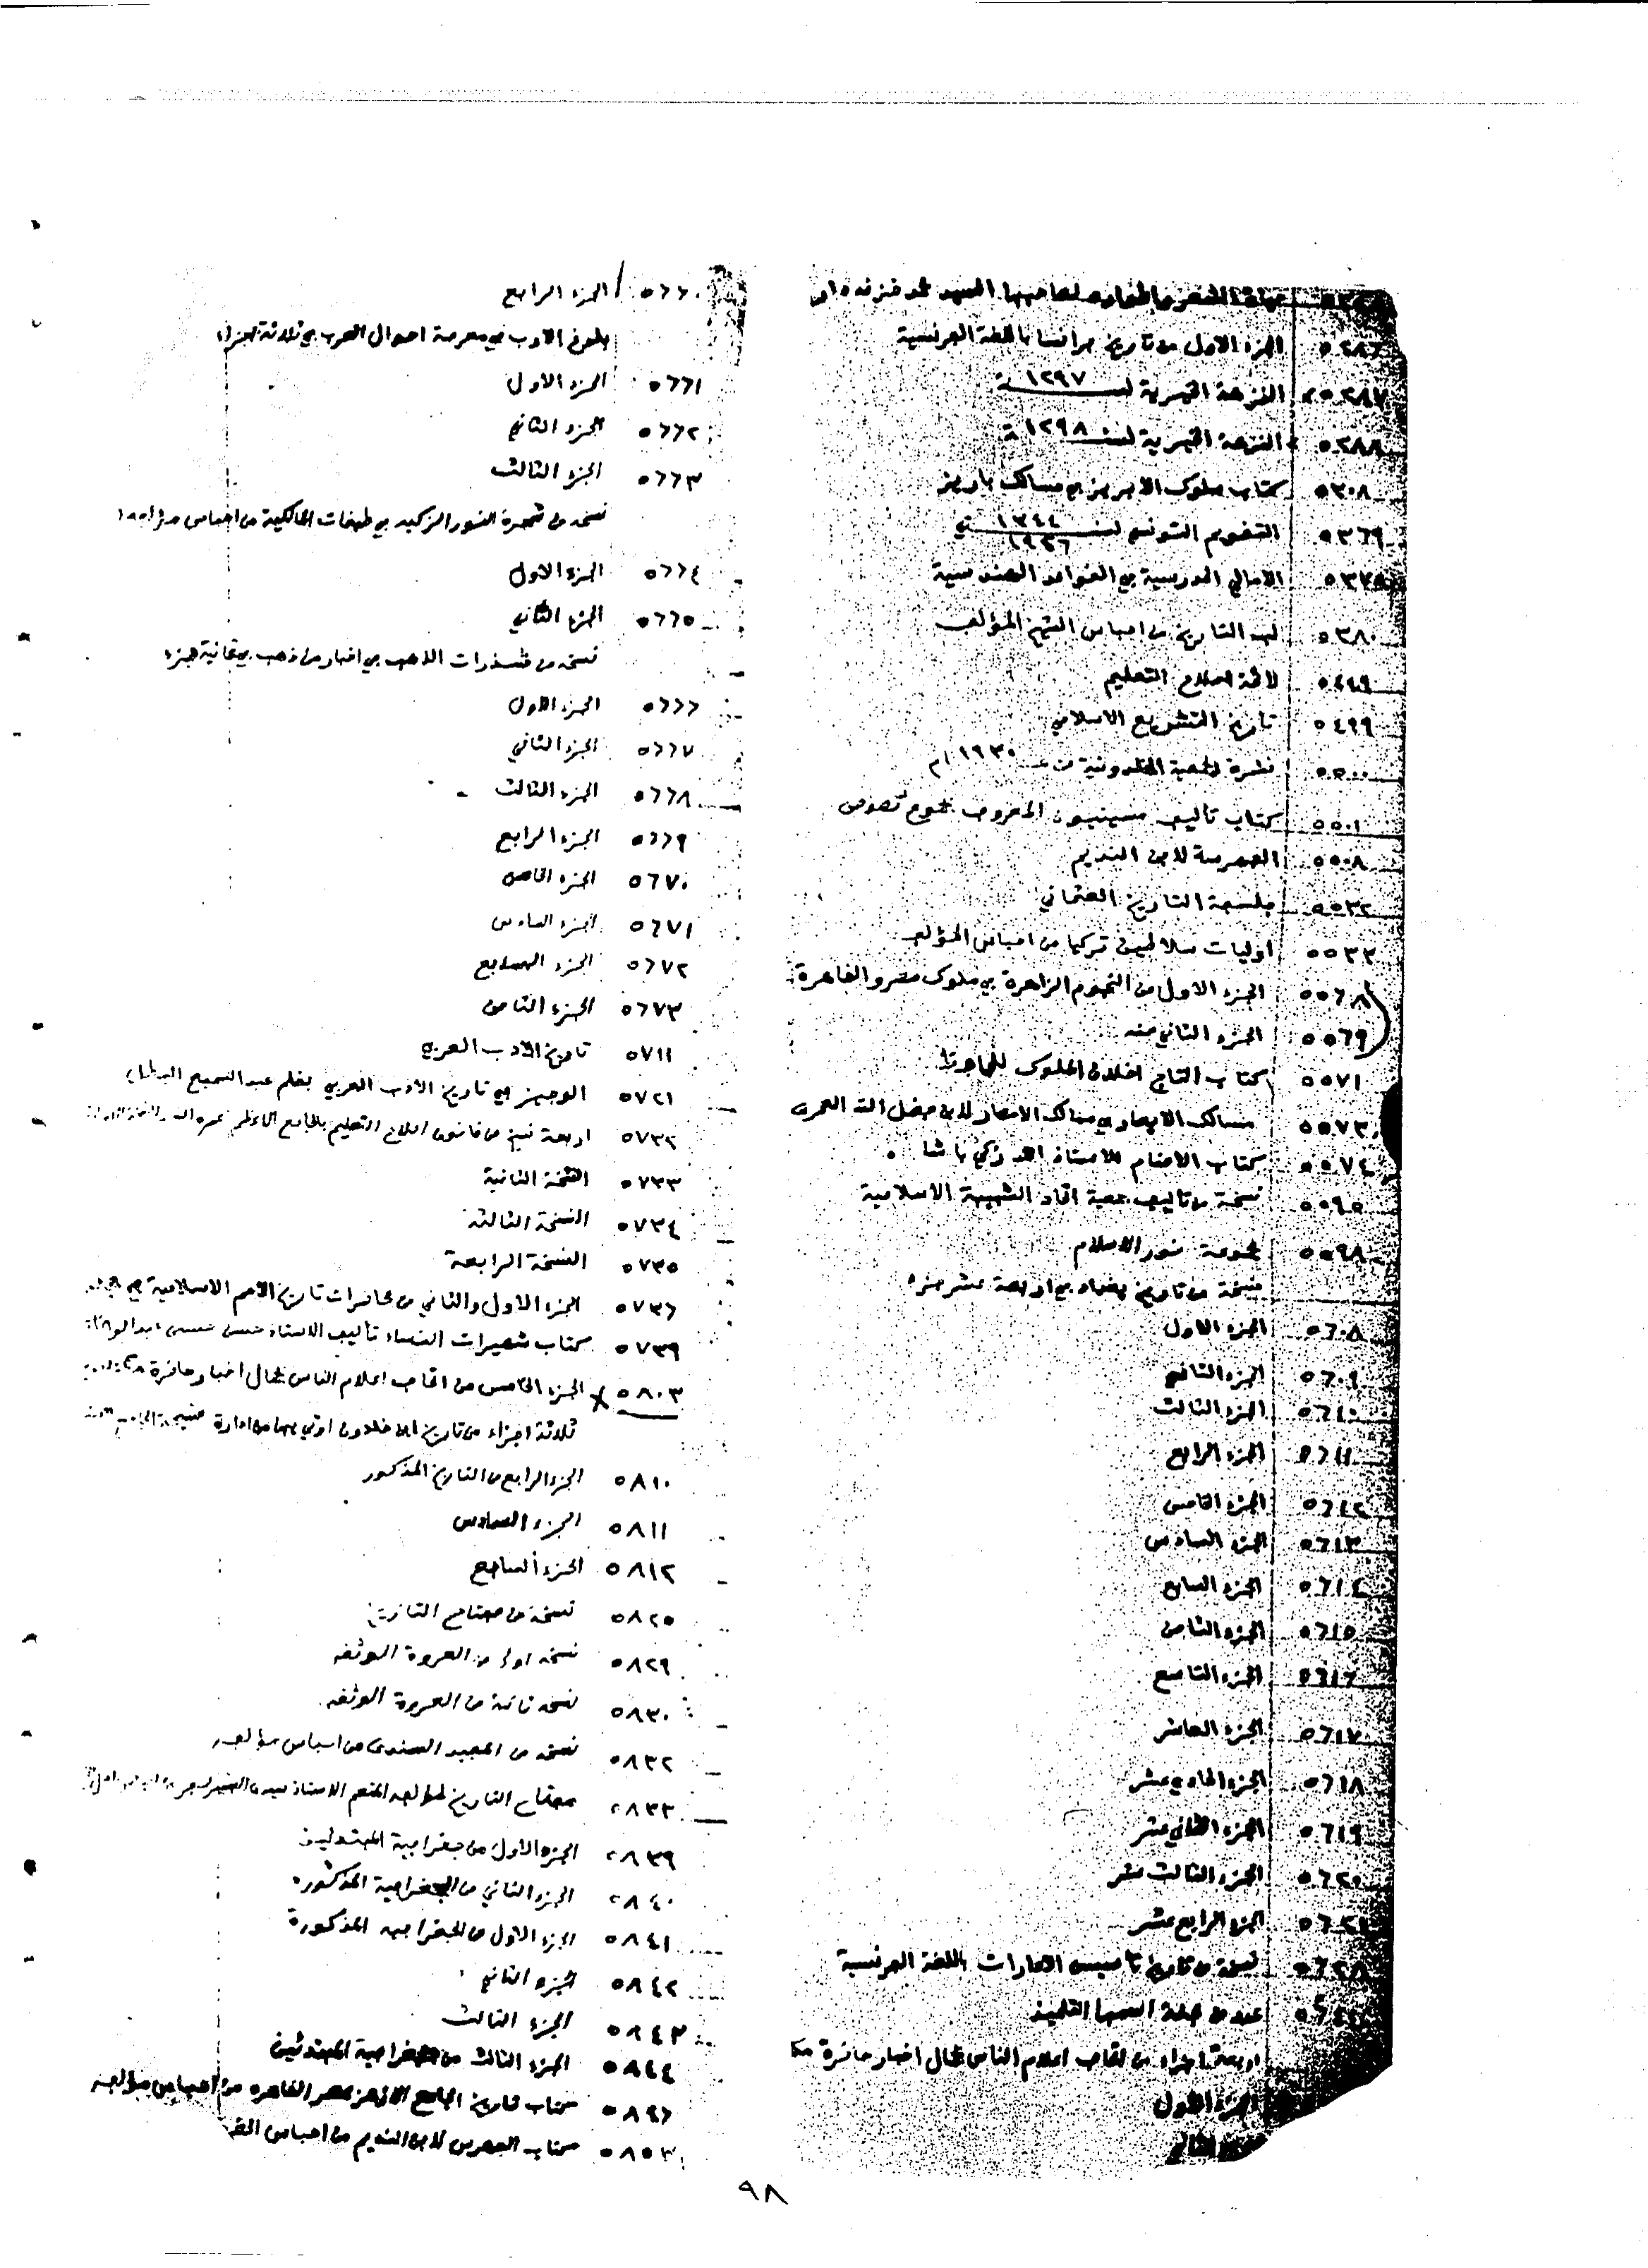 ٥٢٨٦ الجزء الاول من تاريخ فرانسا باللغة الفرنسية
٥٢٨٧ النزهة الخيرية لسنة ١٢٩٧
٥٢٨٨ النزهة الخيرية لسنة ١٢٩٨
٥٣٠٨ كتاب سلوك الابريز في مسالك باريز
٥٣٦٩ التقويم التونسي لسنتي ١٣٤٤ ١٩٢٦
الامالي المدرسية في القواعد الهندسية
٥٣٨٠ لب التاريخ من احباس الشيخ المؤلف
لائحة اصلاح التعليم
٥٤٩٩ تاريخ التشريع الاسلامي
٥٥٠٠ نشرة الجمعية الخلدونية سنة ١٩٣٠م
٥٥٠١ كتاب تأليف مسينيون المعروف بمجموع نصوص
٥٥٠٨ الفهرسة لابن النديم
٥٥٣٢ فلسفة التاريخ العثماني
٥٥٣٣ اوليات سلاطين تركيا من احباس المؤلف
٥٥٦٨ الجزء الاول من النجوم الزاهرة في ملوك مصر والقاهرة
٥٥٦٩ الجزء الثاني منه
٥٥٧١ كتاب التاج اخلاق الملوك للجاحظ
٥٥٧٣ مسالك الابصار في ممالك الامصار لابن فضل الله العمري
٥٥٧٤ كتاب الاصنام للاستاذ احمد زكي باشا
٥٥٩٥ نسخة من تاليف جمعية اتحاد الشبيبة الاسلامية
٥٥٩٨ مجموعة نور الاسلام
نسخة من تاريخ بغداد في اربعة عشر جزء
٥٦٠٨ الجزء الاول
٥٦٠٩ الجزء الثاني
٥٦١٠ الجزء الثالث
٥٦١١ الجزء الرابع
٥٦١٢ الجزء الخامس
٥٦١٣ الجزء السادس
٥٦١٤ الجزء السابع
٥٦١٥ الجزء الثامن
٥٦١٦ الجزء التاسع
٥٦١٧ الجزء العاشر
٥٦١٨ الجزء الحادي عشر
٥٦١٩ الجزء الثاني عشر
٥٦٢٠ الجزء الثالث عشر
٥٦٢١ الجزء الرابع عشر
نسخة من تاريخ تأسيس الامارات باللغة الفرنسية
عدد من مجلة التلميذ
اربعة اجزاء من اتحاف اعلام الناس بجمال اخبار حاضرة
الجزء الاول
الثاني
٥٦٦٠ الجزء الرابع
بلوغ الارب في معرفة احوال العرب في ثلاثة اجزاء
٥٦٦١ الجزء الاول
٥٦٦٢ الجزء الثاني
٥٦٦٣ الجزء الثالث
نسخة من شجرة النور الزكية في طبقات المالكية من احباس
٥٦٦٤ الجزء الاول
٥٦٦٥ الجزء الثاني
نسخة من شذرات الذهب في اخبار من ذهب في ثمانية جزء
٥٦٦٦ الجزء الاول
٥٦٦٧ الجزء الثاني
٥٦٦٨ الجزء الثالث
٥٦٦٩ الجزء الرابع
٥٦٧٠ الجزء الخامس
٥٦٧١ الجزء السادس
٥٦٧٢ الجزء السابع
٥٦٧٣ الجزء الثامن
٥٧١١ تاريخ الادب العربي
٥٧٢١ الوجيز في تاريخ الادب العربي بقلم عبد السميع
٥٧٣٢ اربعة نسخ من قانون اصلاح التعليم بالجامع الاعظم
٥٧٣٣ النسخة الثانية
٥٧٣٤ النسخة الثالثة
٥٧٣٥ النسخة الرابعة
٥٧٣٦ الجزء الاول والثاني من محاضرات تاريخ الامم الاسلامية في
٥٧٣٩ كتاب شهيرات النساء تأليف الاستاذ حسن حسني عبد الوهاب
٥٨٠٣ الجزء الخامس من اتحاف اعلام الناس بجمال اخبار حاضرة
ثلاثة اجزاء من تاريخ ابن خلدون اوتي بها من ادارة
٥٨١٠ الجزء الرابع من التاريخ المذكور
٥٨١١ الجزء السادس
٥٨١٢ الجزء السابع
٥٨٢٥ نسخة من مفتاح التاريخ
٥٨٢٩ نسخة اولى من العروة الوثقى
٥٨٣٠ نسخة ثانية من العروة الوثقى
٥٨٣٢ نسخة من المفيد السنوي من احباس مؤلفه
٥٨٣٣ مفتاح التاريخ لمؤلفه المنعم الاستاذ
٥٨٣٩ الجزء الاول من جغرافية المبتدئين
٥٨٤٠ الجزء الثاني من الجغرافية المذكورة
٥٨٤١ الجزء الاول من الجغرافية المذكورة
٥٨٤٢ الجزء الثاني
٥٨٤٣ الجزء الثالث
٥٨٤٤ الجزء الثالث من جغرافية المبتدئين
٥٨٩٦ كتاب تاريخ الجامع الازهر بمصر القاهرة من احباس مؤلفه
كتاب الفهرس لابن النديم من احباس
٩٨